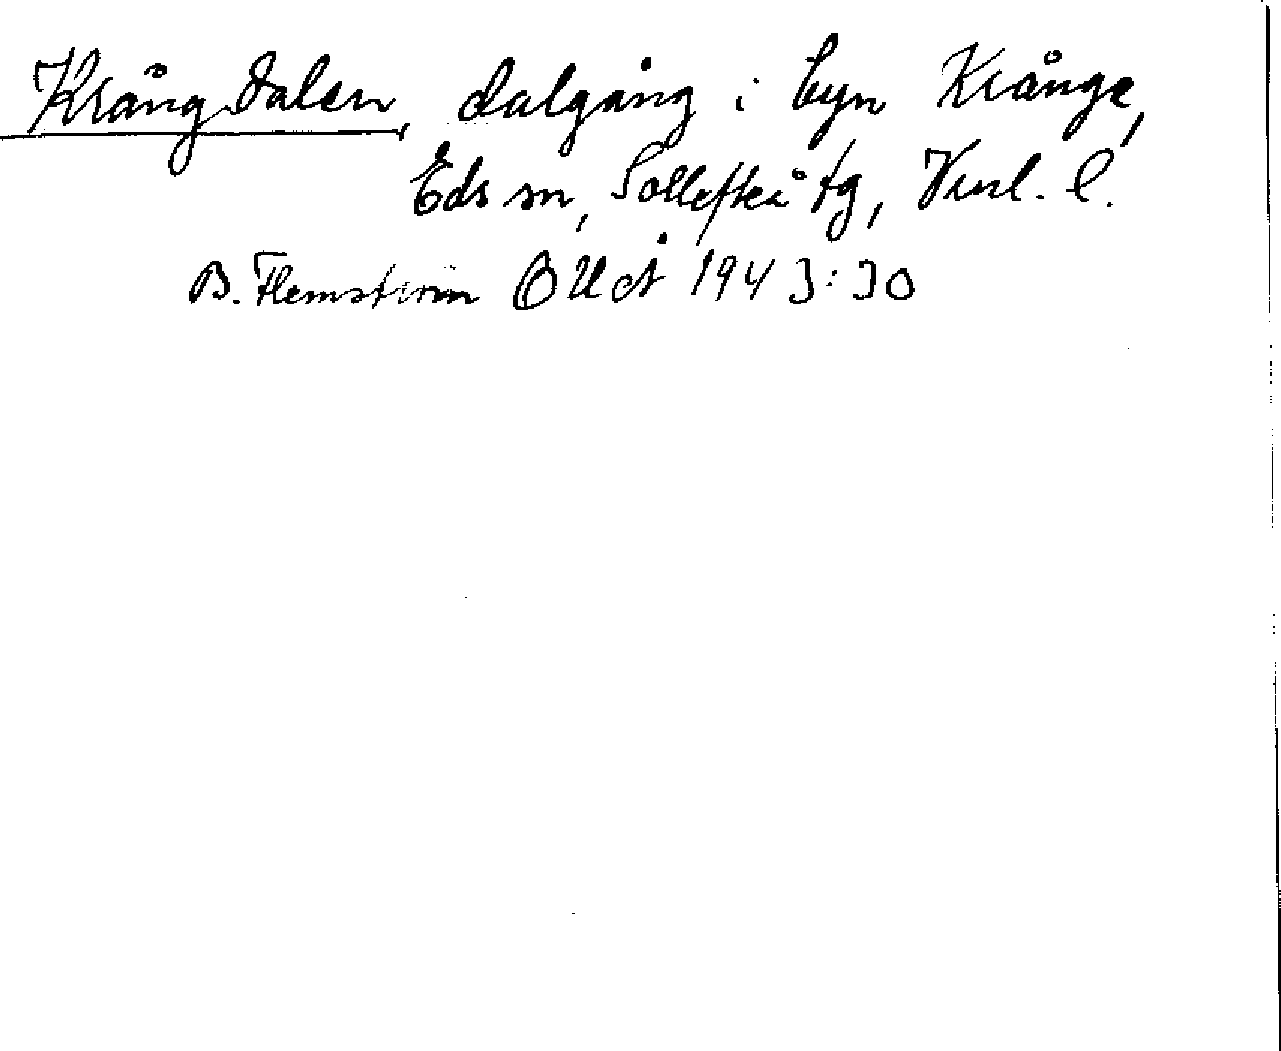 Krångdalen, dalgång i byn Krånge,
Eds sn, Sollefteå tg, Vnl. l.
B. Flemström OUÅ 1943:30